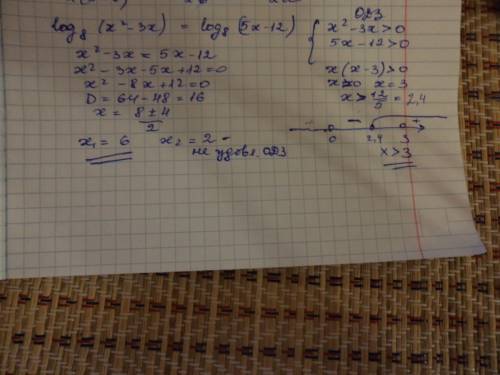 log₈(x²-3x) = log₈(5x-12)
x²-3x = 5x-12
x²-3x-5x+12=0
x²-8x+12=0
D = 64-48=16
x = (8±4)/2
x₁ = 6 x₂ = 2 -
не удовл. ОДЗ
ОДЗ
{ x²-3x>0
5x-12>0
x(x-3)>0
x=0 x=3
x>12/5 = 2,4
- +
0 2,4 3
x>3